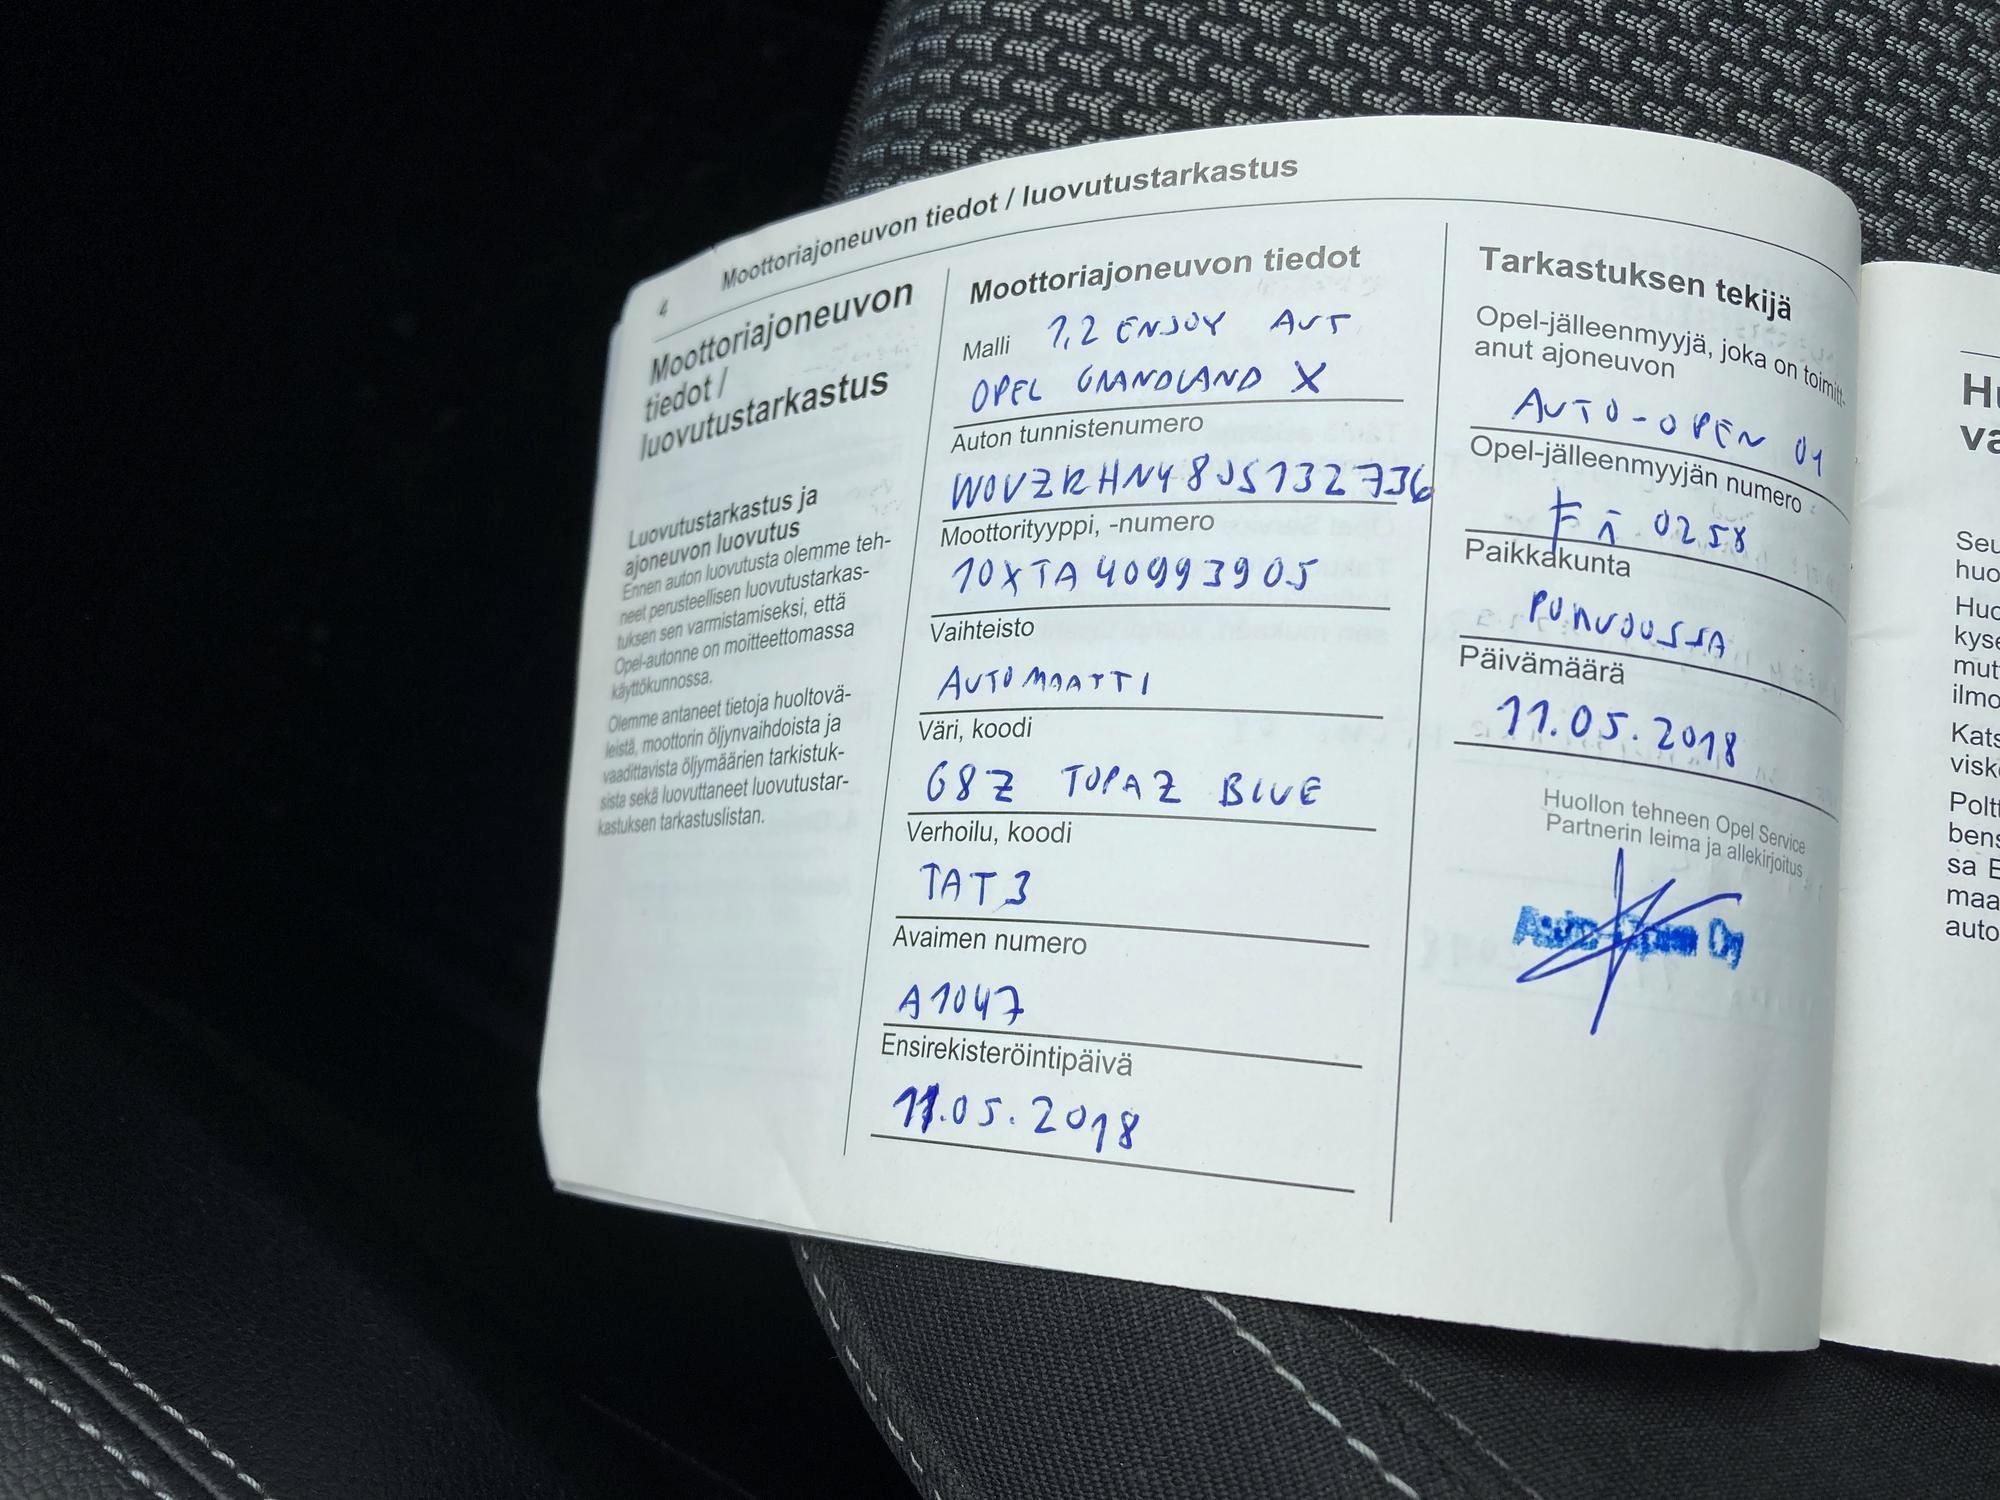 4 Moottoriajoneuvon tiedot / luovutustarkastus
Moottoriajoneuvon
tiedot /
luovutustarkastus
Luovutustarkastus ja
ajoneuvon luovutus
Ennen auton luovutusta olemme teh-
neet perusteellisen luovutustarkas-
tuksen sen varmistamiseksi, että
Opel-autonne on moitteettomassa
käyttökunnossa.
Olemme antaneet tietoja huoltovä-
leistä, moottorin öljynvaihdoista ja
vaadittavista öljymäärien tarkistuk-
sista sekä luovuttaneet luovutustar-
kastuksen tarkastuslistan.
Moottoriajoneuvon tiedot
Malli 1,2 ENJOY AUT
OPEL GRANDLAND X
Auton tunnistenumero
W0VZRHNY8JS132736
Moottorityyppi, -numero
10XTA40993905
Vaihteisto
AUTOMAATTI
Väri, koodi
G8Z TOPAZ BLUE
Verhoilu, koodi
TAT3
Avaimen numero
A1047
Ensirekisteröintipäivä
11.05.2018
Tarkastuksen tekijä
Opel-jälleenmyyjä, joka on toimitt-
anut ajoneuvon
AUTO-OPEN OY
Opel-jälleenmyyjän numero
Fi 0258
Paikkakunta
PORVOOSSA
Päivämäärä
11.05.2018
Huollon tehneen Opel Service
Partnerin leima ja allekirjoitus
Auto-Open Oy
Seu
huo
Huo
kyse
mutt
ilmo
Kats
visko
Poltt
bens
sa E
maa
auto